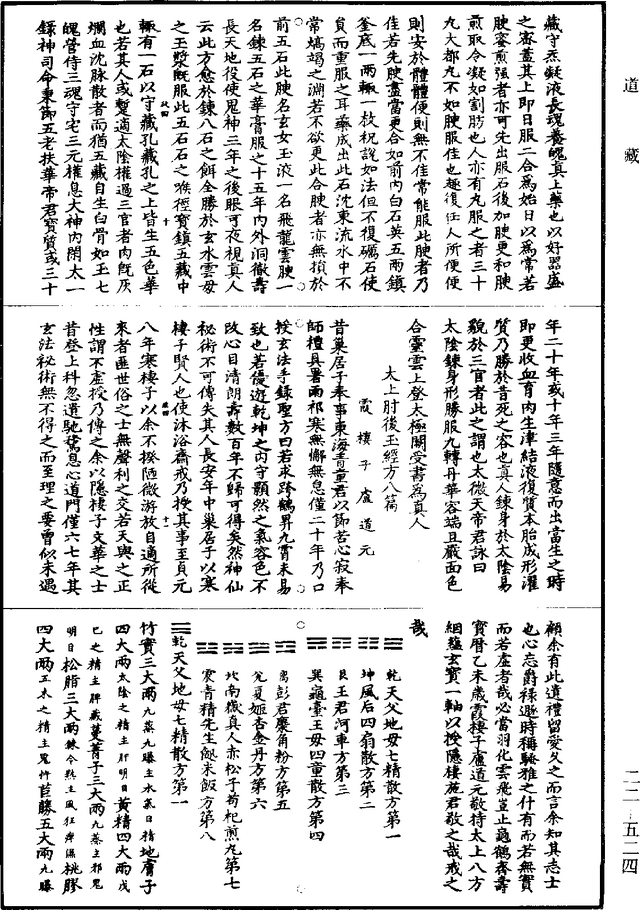 道藏
藏守炁凝液長魂養魄真上藥也以好器盛
之密蓋其上即日服二合為始日以為常若
腴蜜煎強者亦可先出服石後加腴更和腴
煎取令凝如割肪也人亦有丸服之者三十
九大都丸不如腴服佳也趣復任人所便便
則安於體體便則無不佳常能服此腴者乃
佳若先腴盡當更合如前內白石英五兩鎮
釜底一兩輒一枚祝說如法但不復礪石使
貟而重服之耳藥成出此石沈東流水中不
常熇竭之淵若不欲更此合腴者亦無損於
前五石此腴名玄女玉液一名飛龍雲腴一
名鍊五石之華膏服之十五年內外洞徹壽
長天地役使鬼神三年之後眼可夜視真人
云此方愈於鍊八石之餌全勝於玄水雲母
之玉漿既服此五石石之喉徑寳鎮五藏中
輒有一石以守藏孔藏孔之上皆生五色華
也若其人或蹔適太陰權過三官者肉既灰
爛血沈脉散者而猶五藏自生白骨如玉七
魄營侍三魂守宅三元權息大神內閉太一
錄神司命秉節五老扶華帝君寳質或三十
年二十年或十年三年隨意而出當生之時
即更收血育肉生津結液復質本胎成形濯
質乃勝於昔死之容也真人鍊身於太陰易
貌於三官者此之謂也太微天帝君詠曰
太陰鍊身形勝服九轉丹華容端且嚴面色
合靈雲上登太極闕受書為真人
太上肘後玉經方八篇
霞棲子盧道元
昔巢居子奉事東海青童君以節苦心寂奉
師禮具暑雨祁寒無懈無怠僅二十年乃口
授玄法手錄聖方曰若求跨鶴昇九霄未易
致也若優遊乾坤之內守顥然之氣容色不
改心目清朗壽數百年不歸可得矣然神仙
秘術不可傳失其人長安年中巢居子以寒
棲子賢人也使沐浴齋戒乃授其事至貞元
八年寒棲子以余不揆陋微游放自適所從
來者匪世俗之士無聲利之交若天與之正
性謂不虛授乃傳之余以隱棲子文華之士
昔登上科忽遺馳騖息心道門僅六七年其
玄法秘術無不得之而至理之要曾似未遇
顧余有此遺禮留愛久之而言余知其志士
也心忘爵祿遯時稱馳雅之什有而若無實
而若虛者哉必當羽化雲飛豈止龜鶴奪壽
寳曆乙未歲霞棲子盧道元敬持太上八方
絪蘊玄寳一軸以授隱棲施君敬之哉戒之
哉
乾天父地母七精散方第一
坤風后四扇散方第二
艮王君河車方第三
巽龜臺王母四童散方第四
离彭君麋角粉方第五
兊夏姬杏金丹方第六
坎南嶽真人赤松子苟杞煎丸第七
震青精先生䭀米飯方第八
乾天父地母七精散方第一
竹實三大兩九蒸九曝主水氣日精地膚子
四大兩太陰之精主肝明目黄精四大兩戊
已之精主脾藏蔓菁子三大兩九蒸主邪鬼
明目松脂三大兩鍊令熟主風狂痹濕桃膠
四大兩五木之精主鬼忤苣勝五大兩九曝
二二—五二四